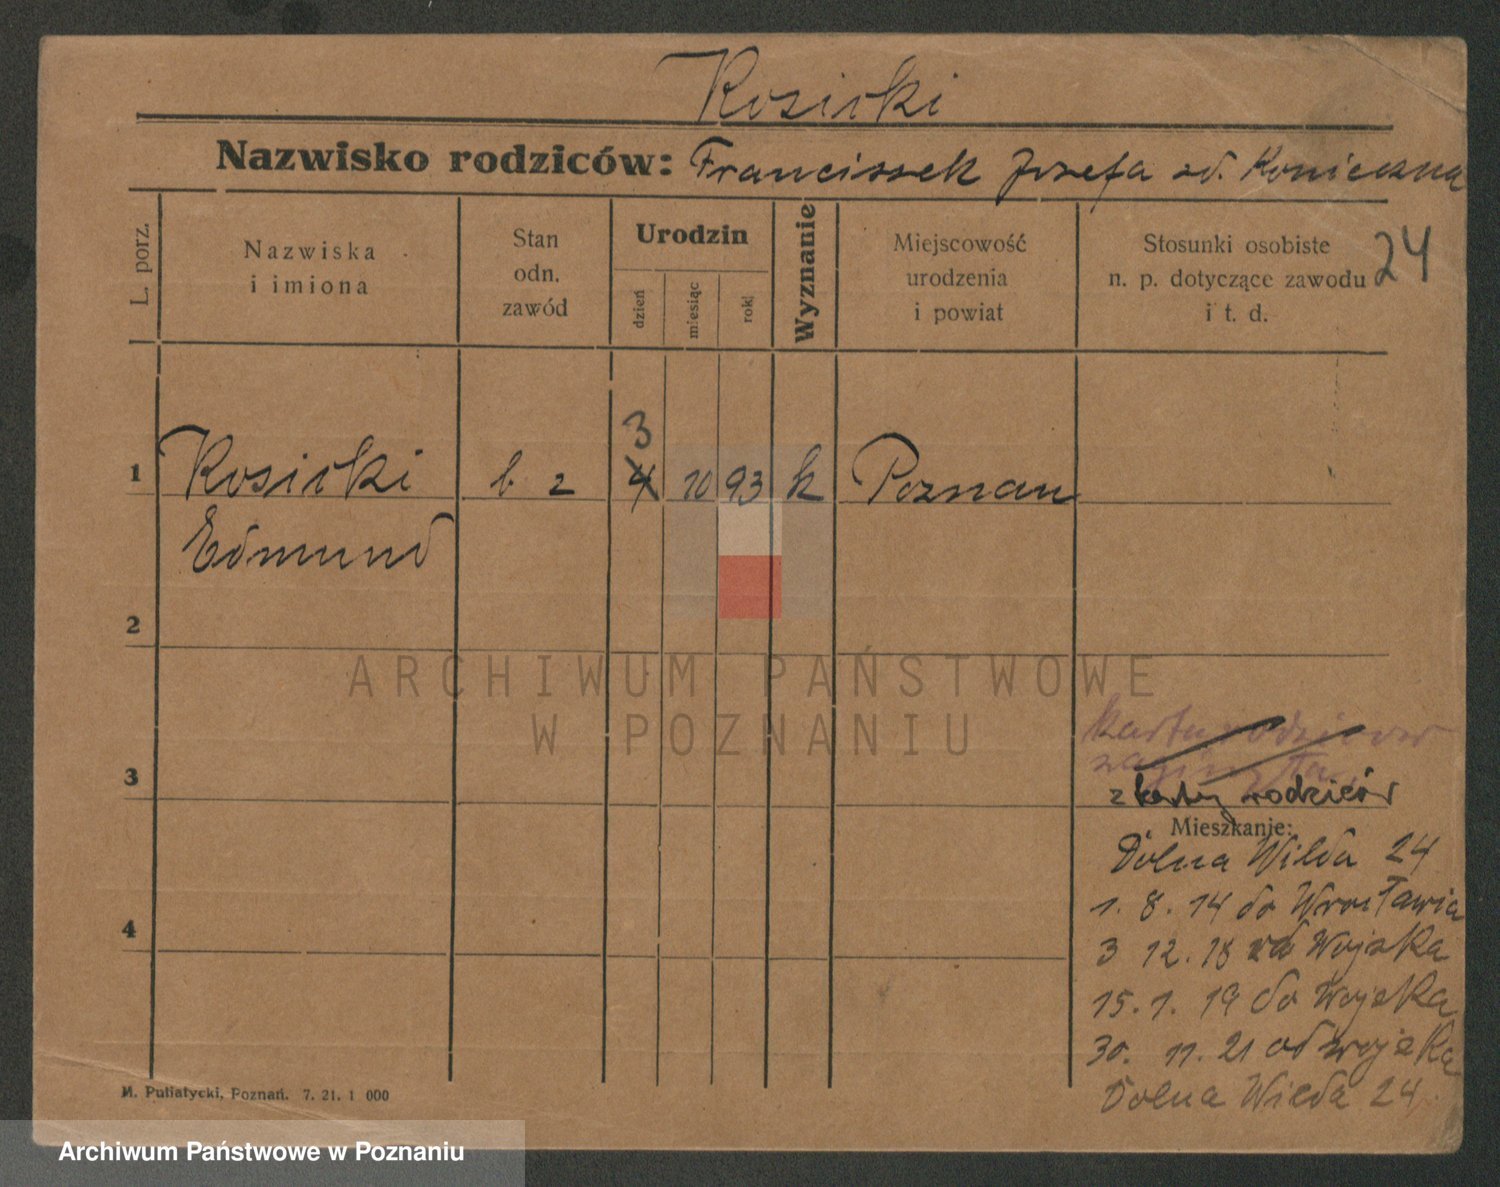 Kosicki
Nazwisko rodziców: Franciszek Józefa zd. Konieczna
L. porz.
Nazwiska
i imiona
Stan
odn.
zawód
Urodzin
dzień
miesiąc
rok
Wyznanie
Miejscowość
urodzenia
i powiat
Stosunki osobiste
n. p. dotyczące zawodu
i t. d.
24
3
1 Kosicki b z 4 10 93 k Poznan
Edmund
2
3
4
karta rodziców
zaginęła
z karty rodziców
Mieszkanie:
Dolna Wilda 24
1. 8. 14 do Wrocławia
3 12. 18 od Wojska
15. 1. 19 do Wojska
30. 11. 21 od wojska
Dolna Wilda 24
M. Putiatycki, Poznań. 7. 21. 1 000
ARCHIWUM PAŃSTWOWE
W POZNANIU
Archiwum Państwowe w Poznaniu